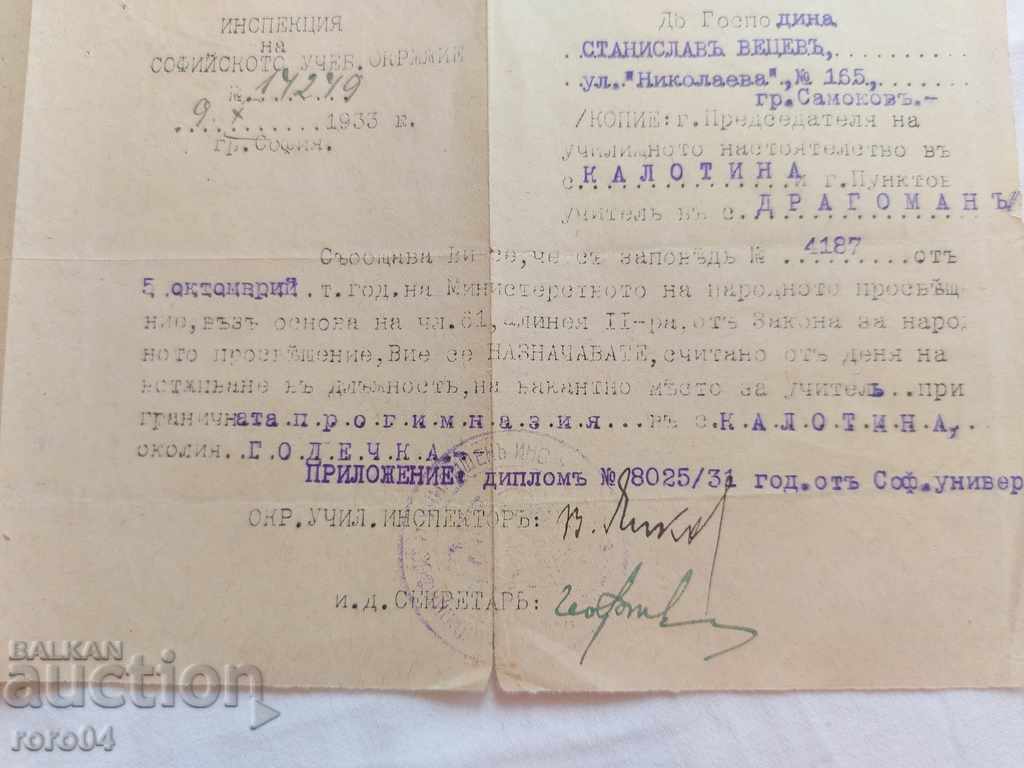 ИНСПЕКЦИЯ
на
СОФИЙСКОТО УЧЕБ. ОКРѪЖИЕ
№ 14249
9. X 1933 г.
гр.София.
До Господина
СТАНИСЛАВЪ ВЕЦЕВЪ,
ул."Николаева",№ 165,
гр.Самоковъ.-
/КОПИЕ: г.Председателя на
училищното настоятелство въ
с. КАЛОТИНА и г.Пунктов
учитель въ с. ДРАГОМАНЪ/
Съобщава Ви се,че съ заповѣдь № 4187 отъ
5 октомврий т.год.на Министерството на народното просвѣще
ние,възъ основа на чл.61,алинея II-ра,отъ Закона за народ
ното просвѣщение,Вие се НАЗНАЧАВАТЕ,считано отъ деня на
встѫпване въ длъжность,на вакантно мѣсто за учитель..при
граничната.п.р.о.г.и.м.н.а.з.и.я...въ с.К.А.Л.О.Т.И.Н.А,
околия..Г.О.Д.Е.Ч.К.А.
ПРИЛОЖЕНИЕ: дипломъ № 8025/31 год.отъ Соф.универ
ОКР.УЧИЛ.ИНСПЕКТОРЪ:
и.д.СЕКРЕТАРЬ:
BALKAN
auction
roro04